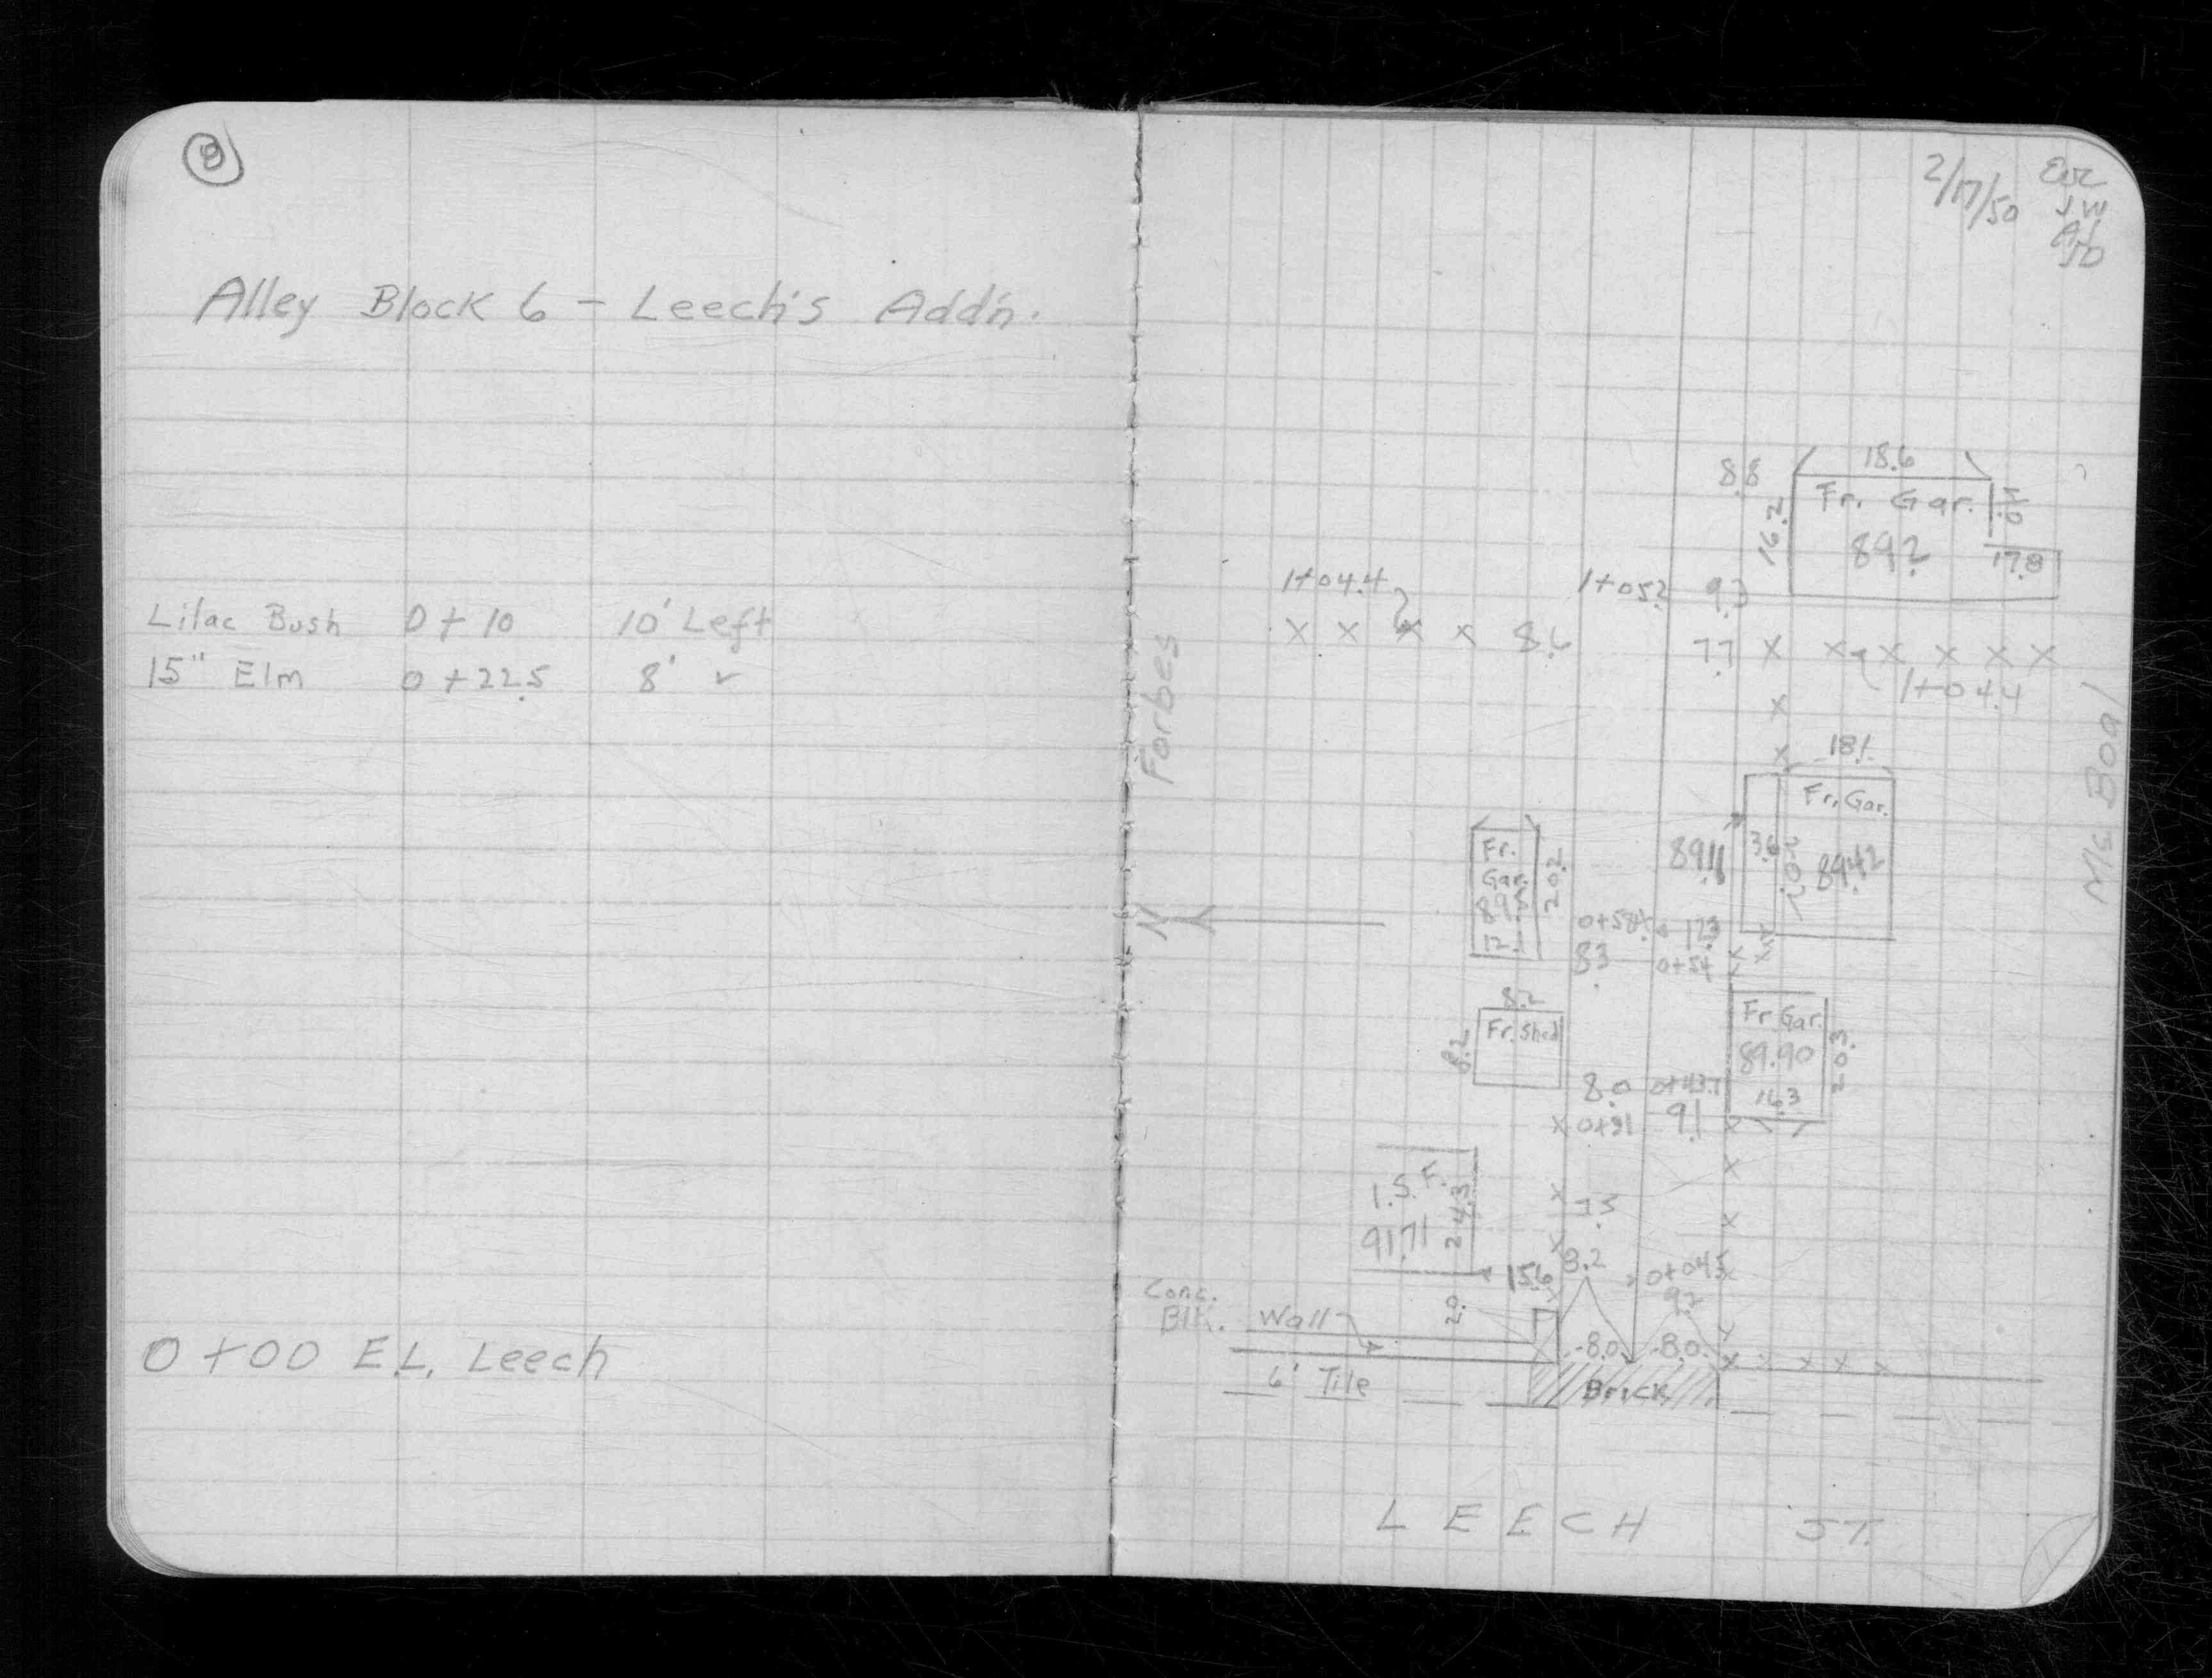 8
Alley Block 6 - Leech's Add'n.
Lilac Bush 0+10 10' Left
15" Elm 0+22.5 8' "
0+00 E.L. Leech
2/17/50
JW
JD
18.6
8.8
Fr. Gar.
16.2
89.2
17.8
1+04.4
1+05.2 9.3
x x x x 8.6
7.7 x x x x x x
1+04.4
Forbes
Mc Boal
18.1
Fr. Gar.
Fr.
Gar.
20.2
89.11
3.6
20.2
89.42
89.5
12.1
0+58.4
17.3
8.3
0+54
N
8.2
Fr. Shed
8.2
Fr. Gar.
89.90
20.3
16.3
8.0
0+43.7
x 0+31
9.1
1.S.F.
91.71
24.3
15.6
8.2
0+04.5
9.2
Conc.
Blk. Wall
2.0
8.0
8.0
6' Tile
Brick
LEECH ST.